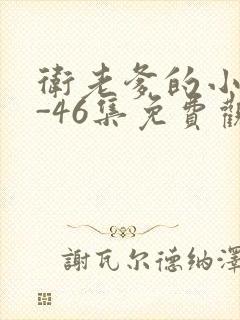 衛老爹的小
-46集免費觀
謝瓦尔德纳澤